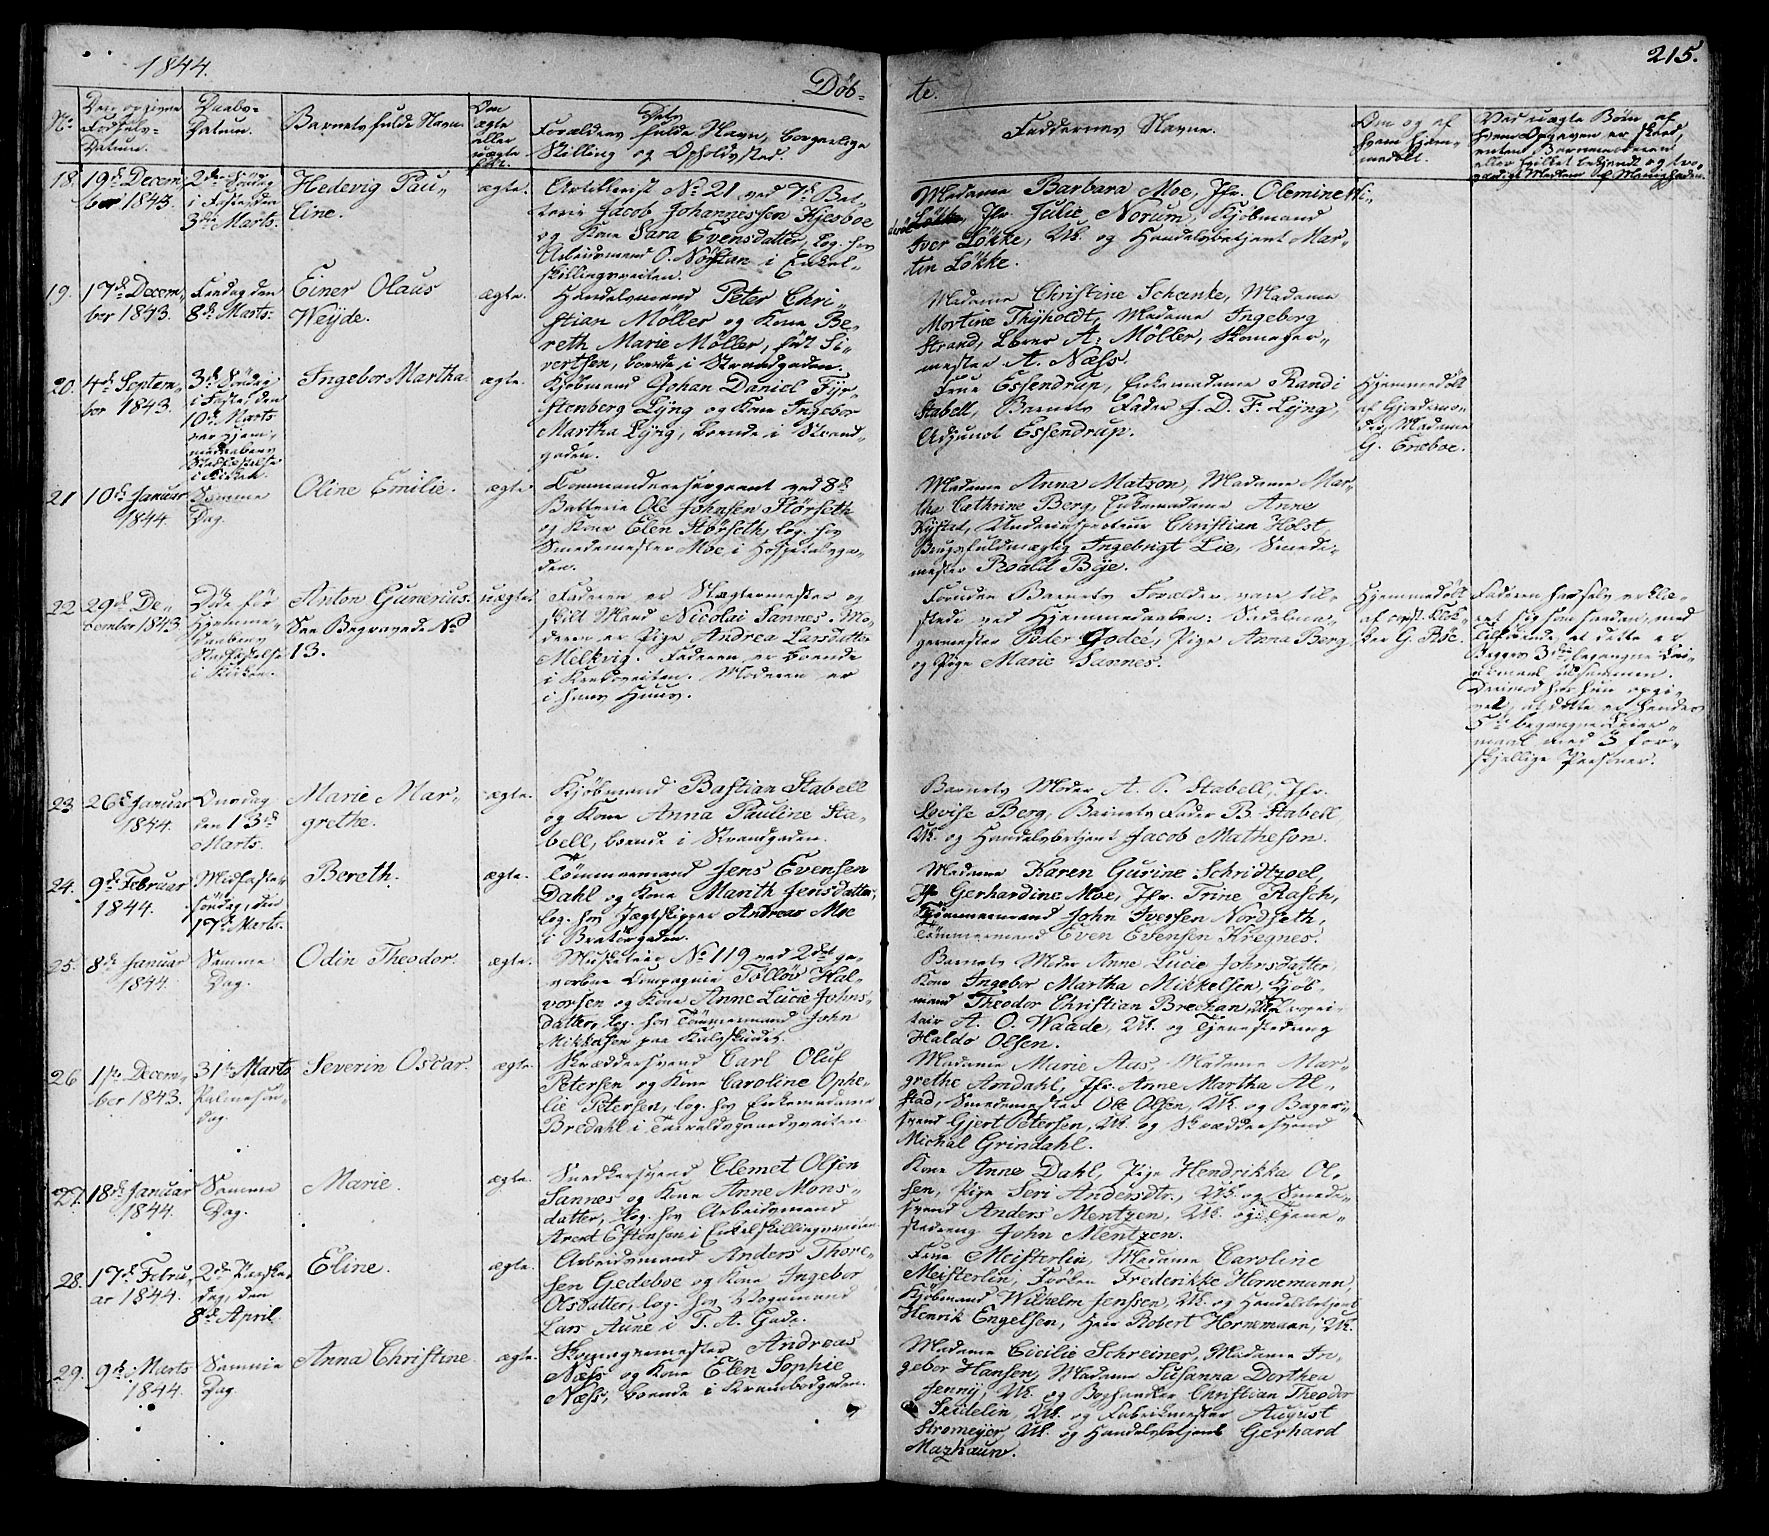 1844.
Døb-
te.
215.
No
Den opgivne Fødsels-Datum.
Daabs-Datum.
Barnets fulde Navn.
Om ægte eller uægte
Forældres fulde Navn, borgerlige Stilling og Opholdssted.
Faddernes Navne.
Om og af hvem hjem-medøbt.
18.
19de Decem-
ber 1843.
i Fasten, den
3die Marts.
Hedevig Pau-
line.
ægte.
Artillerist No 21 ved 7de Bat-
terie Jacob Johannessen Hjesboe
og Kone Sara Evensdatter, log. hos
Arbeidsmand O. Nøstan i Enkel-
skillingsveiten.
Madame Barbara Moe, Jfr. Olemine
Løkke, Jfr. Julie Norum, Kjøbmand
Iver Løkke, Uk. og Handelsbetjent Mar-
tin Løkke.
19.
17de Decem-
ber 1843.
Fredag den
8de Marts.
Einer Olaus
Weyde.
ægte.
Handelsmand Peter Chri-
stian Møller og Kone Be-
reth Marie Møller, født Si-
vertsen, boende i Strandgaden.
Madame Christine Schanke, Madame
Mortine Thyholdt, Madame Ingeborg
Strand, Lærer A. Møller, Skomager-
mester A. Næss.
20.
4de Septem-
ber 1843.
3die Søndag
i Fasten den
10de Marts
Ingebor Martha.
ægte.
Kjøbmand Johan Daniel Fyr-
stenberg Lyng og Kone Ingebor
Martha Lyng, boende i Strand-
gaden.
Frue Essendrup, Enkemadame Randi
Stabell, Barnets Fader J. D. F. Lyng,
Adjunct Essendrup.
Hjemmedøbt
af Gjordemo-
der, Madame
G. Eneboe.
21
10de Januar
1844.
Samme
Dag.
Oline Emilie.
ægte.
Commandeersergeant ved 8de
Batterie Ole Johnsen Størseth
og Kone Elen Størseth, log. hos
Smedemester Moe, i Hospitalsga-
den.
Madame Anna Matson, Madame Mar-
the Cathrine Berg, Enkemadame Anne
Rystad, Underinspecteur Christian Holst,
Brugsfuldmægtig Ingebrigt Lie, Smede-
mester Roald Bye.
22
29de De-
cember 1843.
Døde før
Hjemme-
daabens
Stadfæstelse
i Kirken.
Anton Gunerius.
See Begravede No
13.
uægte.
Faderen er Slagtermester og
skilt Mand Nicolai Sannes. Mo-
deren er Pige Andrea Larsdatter
Melkvig. Faderen er boende
i Moderen er
i hans Huus.
Foruden Barnets Forældre, vare til-
stede ved Hjemmedaaben: Sadelma-
germester Peder Godeé, Pige Anna Berg
og Pige Marie Sannes.
Hjemmedøbt
af
ker G. Bye.
Faderen har selv erklæ-
ret sig som saadan, med
Tilføiende, at dette er
Begges 3die begangne Lei-
ermaal tilsammen.
Derimod har hun opgi-
vet, at dette er hendes
5te begangne Leier-
maal med 3 for-
skjellige Personer.
23
26de Januar
1844.
Onsdag
den 13de
Marts.
Marie Mar-
grethe.
ægte.
Kjøbmand Bastian Stabell
og Kone Anna Pauline Sta-
bell, boende i Strandgaden.
Barnets Moder A. P. Stabell, Jfr.
Lovise Berg, Barnets Fader B. Stabell
Uk. og Handelsbetjent Jacob Matheson.
24.
9de Februar
1844.
Midfaste-
søndag, den
17de Marts.
Bereth.
ægte.
Tømmermand Jens Evensen
Dahl og Kone Marith Jensdatter,
log. hos Jægtskipper Andreas Moe
i Bratørgaden.
Madame Karen Gurine Schridtzoel,
Jfr. Gerhardine Moe, Jfr. Trine Rasch,
Tømmermand John Iversen Nordseth,
Tømmermand Even Evensen Kregnes.
25.
8de Januar
1844.
Samme
Dag.
Odin Theodor.
ægte.
Musketeer No 119 ved 2det ge-
vorbne Compagnie Tølløv Hal-
vorsen og Kone Anne Lucie Johns-
datter, log. hos Tømmermand John
Mikkelsen paa Kalvskindet.
Barnets Moder Anne Lucie Johnsdatter,
Kone Ingebor Martha Mikkelsen, Kjøb-
mand Theodor Christian Brechan, Propri-
tair A. O. Waade, Uk. og Tjenestedreng
Haldo Olsen.
26
1ste Decem-
ber 1843.
31te Marts
Palmesøn-
dag.
Severin Oscar.
ægte.
Skræddersvend Carl Oluf
Petersen og Kone Caroline Ophe-
lie Petersen, log. hos Enkemadame
Bredahl i
Madame Marie Aas, Madame Mar-
grethe Arndahl, Jfr. Anne Martha Al-
stad, Smedemester Ole Olsen, Uk. og Bager-
svend Gjert Petersen, Uk. og Skræddersvend
Michal Grindahl.
27.
18de Januar
1844.
Samme
Dag.
Marie.
ægte.
Snedkersvend Clemet Olsen
Sannes og Kone Anne Mons-
datter, log. hos Arbeidsmand
Arent Estensen i Enkelskillingsveiten.
Kone Anne Dahl, Pige Hendrikka Ol-
sen, Pige Seri Andersdtr., Uk. og Smede-
svend Anders Mentzen, Uk. og Tjene-
stedreng John Mentzen.
28.
17de Febru-
ar 1844.
2den Paaske-
dag, den
8de April.
Eline.
ægte.
Arbeidsmand Anders Thore-
sen Gedeboe og Kone Ingebor
Olsdatter, log. hos Vognmand
Lars Aune i T. A. Gade.
Frue Meisterlin, Madame Caroline
Meisterlin, Frøken Frederikke Hornemann,
Kjøbmand Wilhelm Jenssen, Uk. og Handelsbetjent
Henrik Engelsen, Herr Robert Hornemann, Uk.
29.
9de Marts
1844.
Samme
Dag.
Anna Christine.
ægte.
Skomagermester Andreas
Næss og Kone Elen Sophie
Næss, boende i Krambodgaden.
Madame Cecilie Schreiner, Madame In-
gebor Hansen, Madame Susanna Dorthea
Jenny, Uk. og Boghandler Christian Theodor
Seidelin, Uk. og Fabrikmester August
Stromeyer, Uk. og Handelsbetjent Gerhard
Mazhaun.